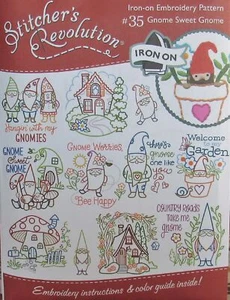 Stitcher's
Revolution®
Iron-on Embroidery Pattern
#35 Gnome Sweet Gnome
IRON ON
hangin with my
GNOMIES
Gnome Worries
there's
gnome
one like
you
Welcome
to my
Garden
GNOME
Sweet
GNOME
Bee Happy
COUNTRY ROADS
TAKE ME
GNOME
Embroidery instructions & color guide inside!